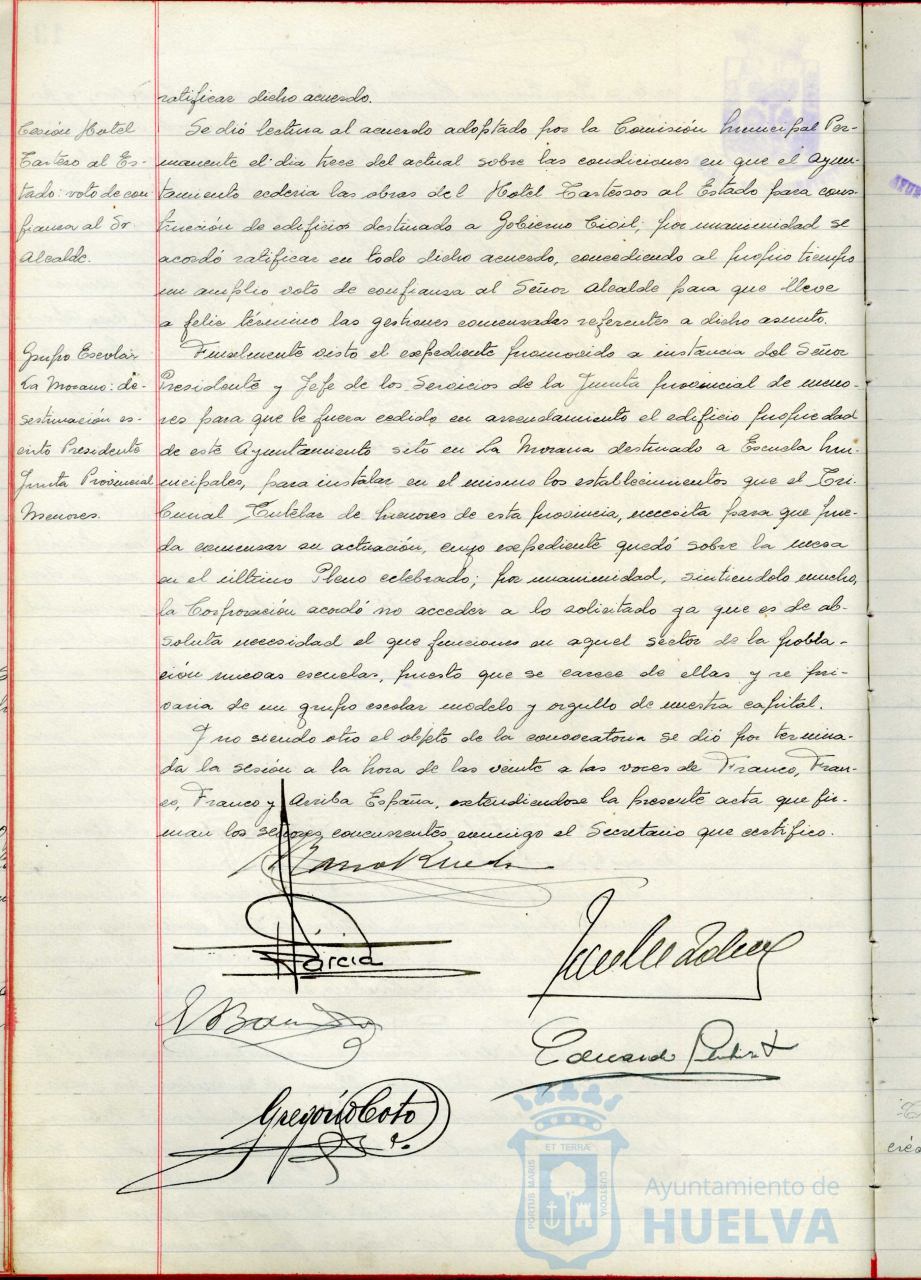 ratificar dicho acuerdo.
Cesión Hotel
Tartero al Es-
tado: voto de con
fianza al Sr
Alcalde.
Se dió lectura al acuerdo adoptado por la Comisión Municipal Per-
manente el dia trece del actual sobre las condiciones en que el Ayun-
tamiento cederia las obras del Hotel Tartessos al Estado para cons-
trucción de edificios destinado a Gobierno Civil; por unanimidad se
acordó ratificar en todo dicho acuerdo, concediendo al propio tiempo
un amplio voto de confianza al Señor Alcalde para que lleve
a feliz término las gestiones comenzadas referentes a dicho asunto.
Grupo Escolar
La Morana: de-
sestimación es-
crito Presidente
Junta Provincial
Menores.
Finalmente visto el expediente promovido a instancia del Señor
Presidente y Jefe de los Servicios de la Junta provincial de meno-
res para que le fuera cedido en arrendamiento el edificio propiedad
de este Ayuntamiento sito en La Morana destinado a Escuela Mu-
nicipales, para instalar en el mismo los establecimientos que el Tri-
bunal Tutelar de Menores de esta provincia, necesita para que pue-
da comenzar su actuación, cuyo expediente quedó sobre la mesa
en el último Pleno celebrado; por unanimidad, sintiendolo mucho,
la Corporación acordó no acceder a lo solicitado ya que es de ab-
soluta necesidad el que funciones en aquel sector de la pobla-
ción nuevas escuelas, puesto que se carece de ellas y se pri-
varia de un grupo escolar modelo y orgullo de nuestra capital.
Y no siendo otro el objeto de la convocatoria se dió por termina-
da la sesión a la hora de las veinte a las voces de Franco, Fran-
co, Franco y Arriba España, extendiendose la presente acta que fir-
man los señores concurrentes conmigo el Secretario que certifico.
García
Eduardo
Gregorio Coto
PORTUS MARIS
ET TERRÆ
CUSTODIA
Ayuntamiento de
HUELVA